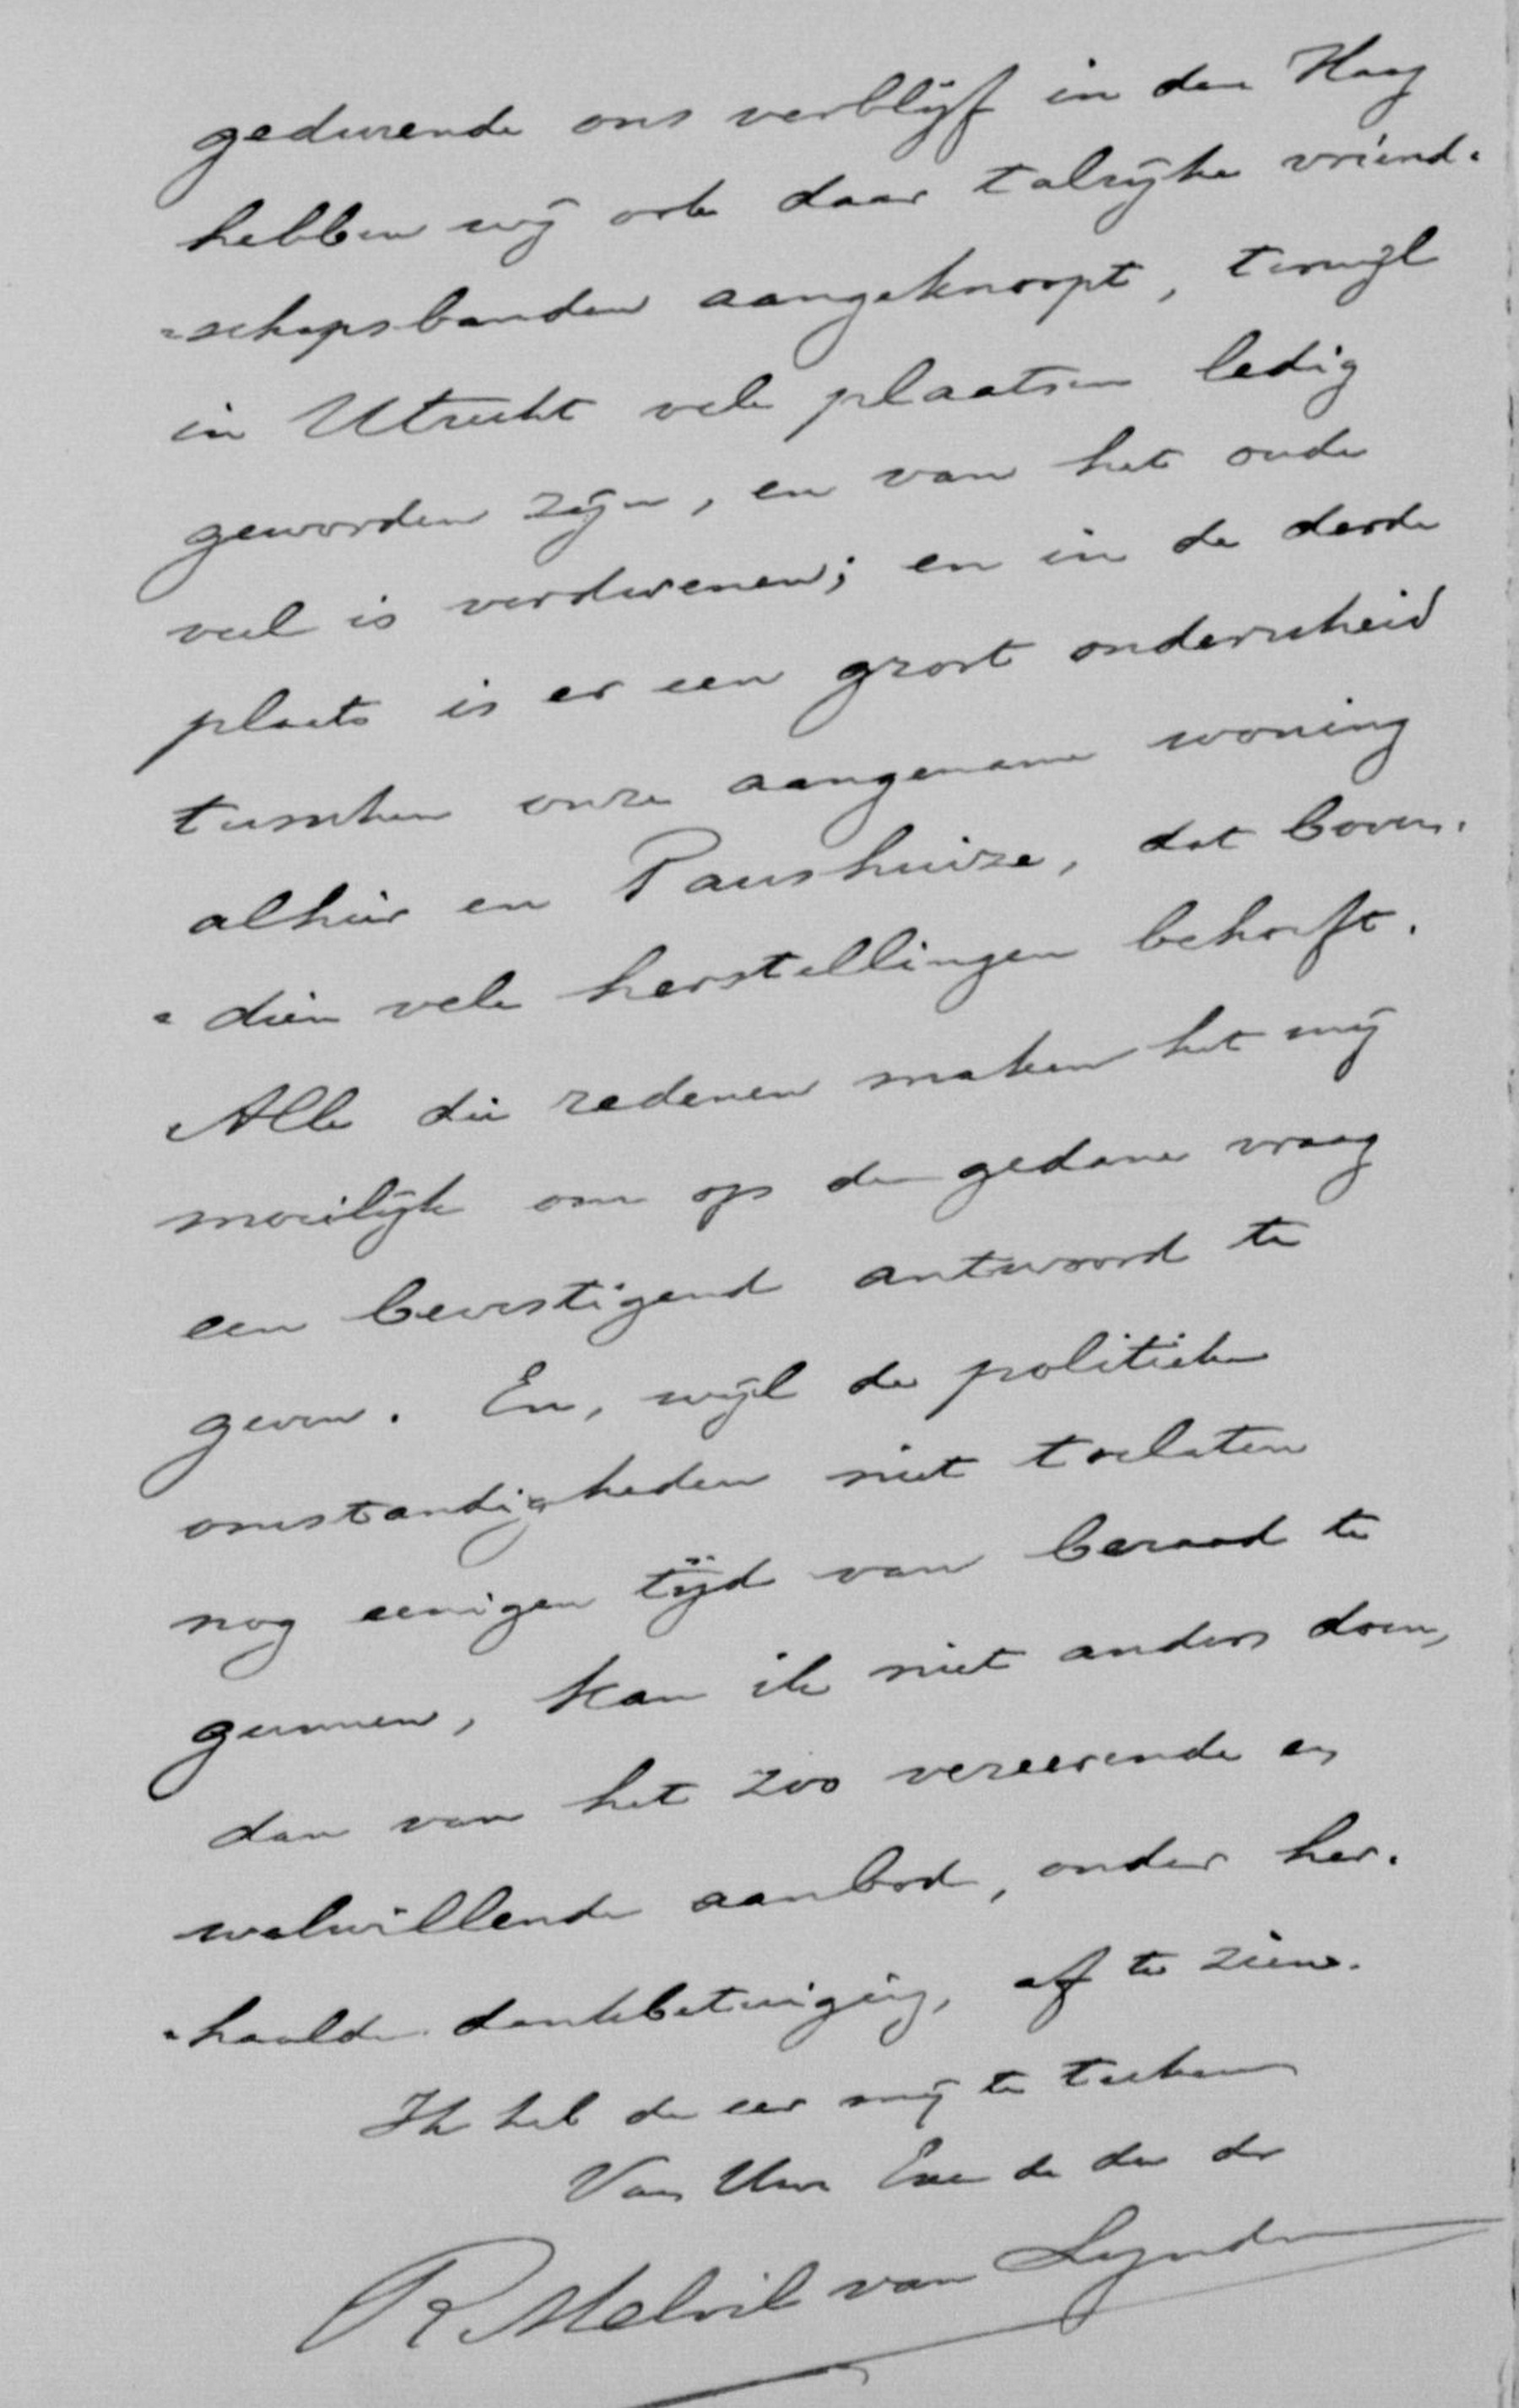 gedurende ons verblijf in den Haag
hebben wij ook daar talrijke vriend-
=schapsbanden aangeknoopt, terwijl
in Utrecht vele plaatsen ledig
geworden zijn, en van het oude
veel is verdwenen; en in de derde
plaats is er een groot onderscheid
tusschen onze aangename woning
alhier en Paushuize, dat boven-
=dien vele herstellingen behoeft.
Alle die redenen maken het mij
moeilijk om op de gedane vraag
een bevestigend antwoord te
geven. En, wijl de politieke
omstandigheden niet toelaten
nog eenigen tijd van beraad te
gunnen, kan ik niet anders doen,
dan van het zoo vereerende en
welwillende aanbod, onder her-
=haalde dankbetuiging, af te zien.
Ik heb de eer mij te teekenen
Van Uwe Exc de dw dr
R Melvil van Lynden